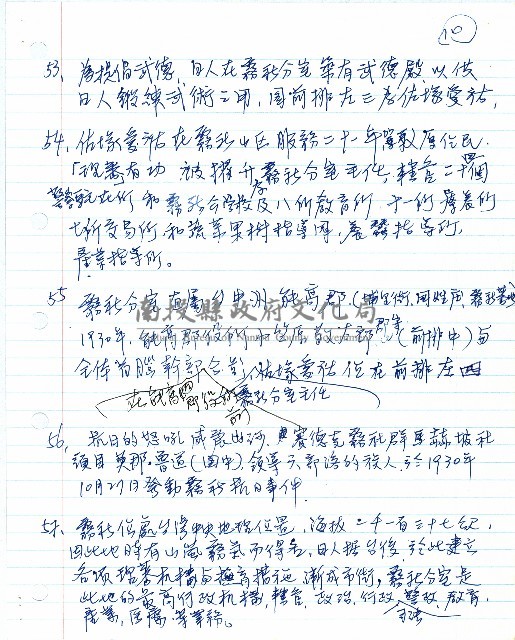 10
53、為提倡武德，日人在霧社分室築有武德殿，以供
日人鍛練武術之用，圖前排左三為佐塚愛祐，
54、佐塚愛祐在霧社山區服務二十一年，原住民
「理蕃有功」被擢升為霧社分室主任，轄管二十個
警察駐在所和霧社公學校及八所教育所，十一所療養所
七所交易所和蔬菜果樹指導園，養蠶指導所，
產業指導所。
55 霧社分室直屬台中州能高郡（埔里街，國姓庄，霧社蕃地）
1930年，能高郡役所小笠原敬太郎郡守（前排中）與
全体首腦幹部合影，佐塚愛祐位在前排左四
在能高郡役所前 霧社分室主任
56、抗日的怒吼威震山河，賽德克霧社群馬赫坡社
頭目莫那・魯道（圖中）領導六部落的族人，於1930年
10月27日發動霧社抗日事件
南投縣政府文化局
57、霧社位處台灣中央地理位置，海拔一千一百三十七公尺，
因此地時有山嵐霧氣而得名，日人據台後於此建立
各項理蕃機構與撫育措施，漸成市街，霧社分室是
此地的最高行政機構，轄管，政治，行政，警政，教育，
產業，医療，等業務。